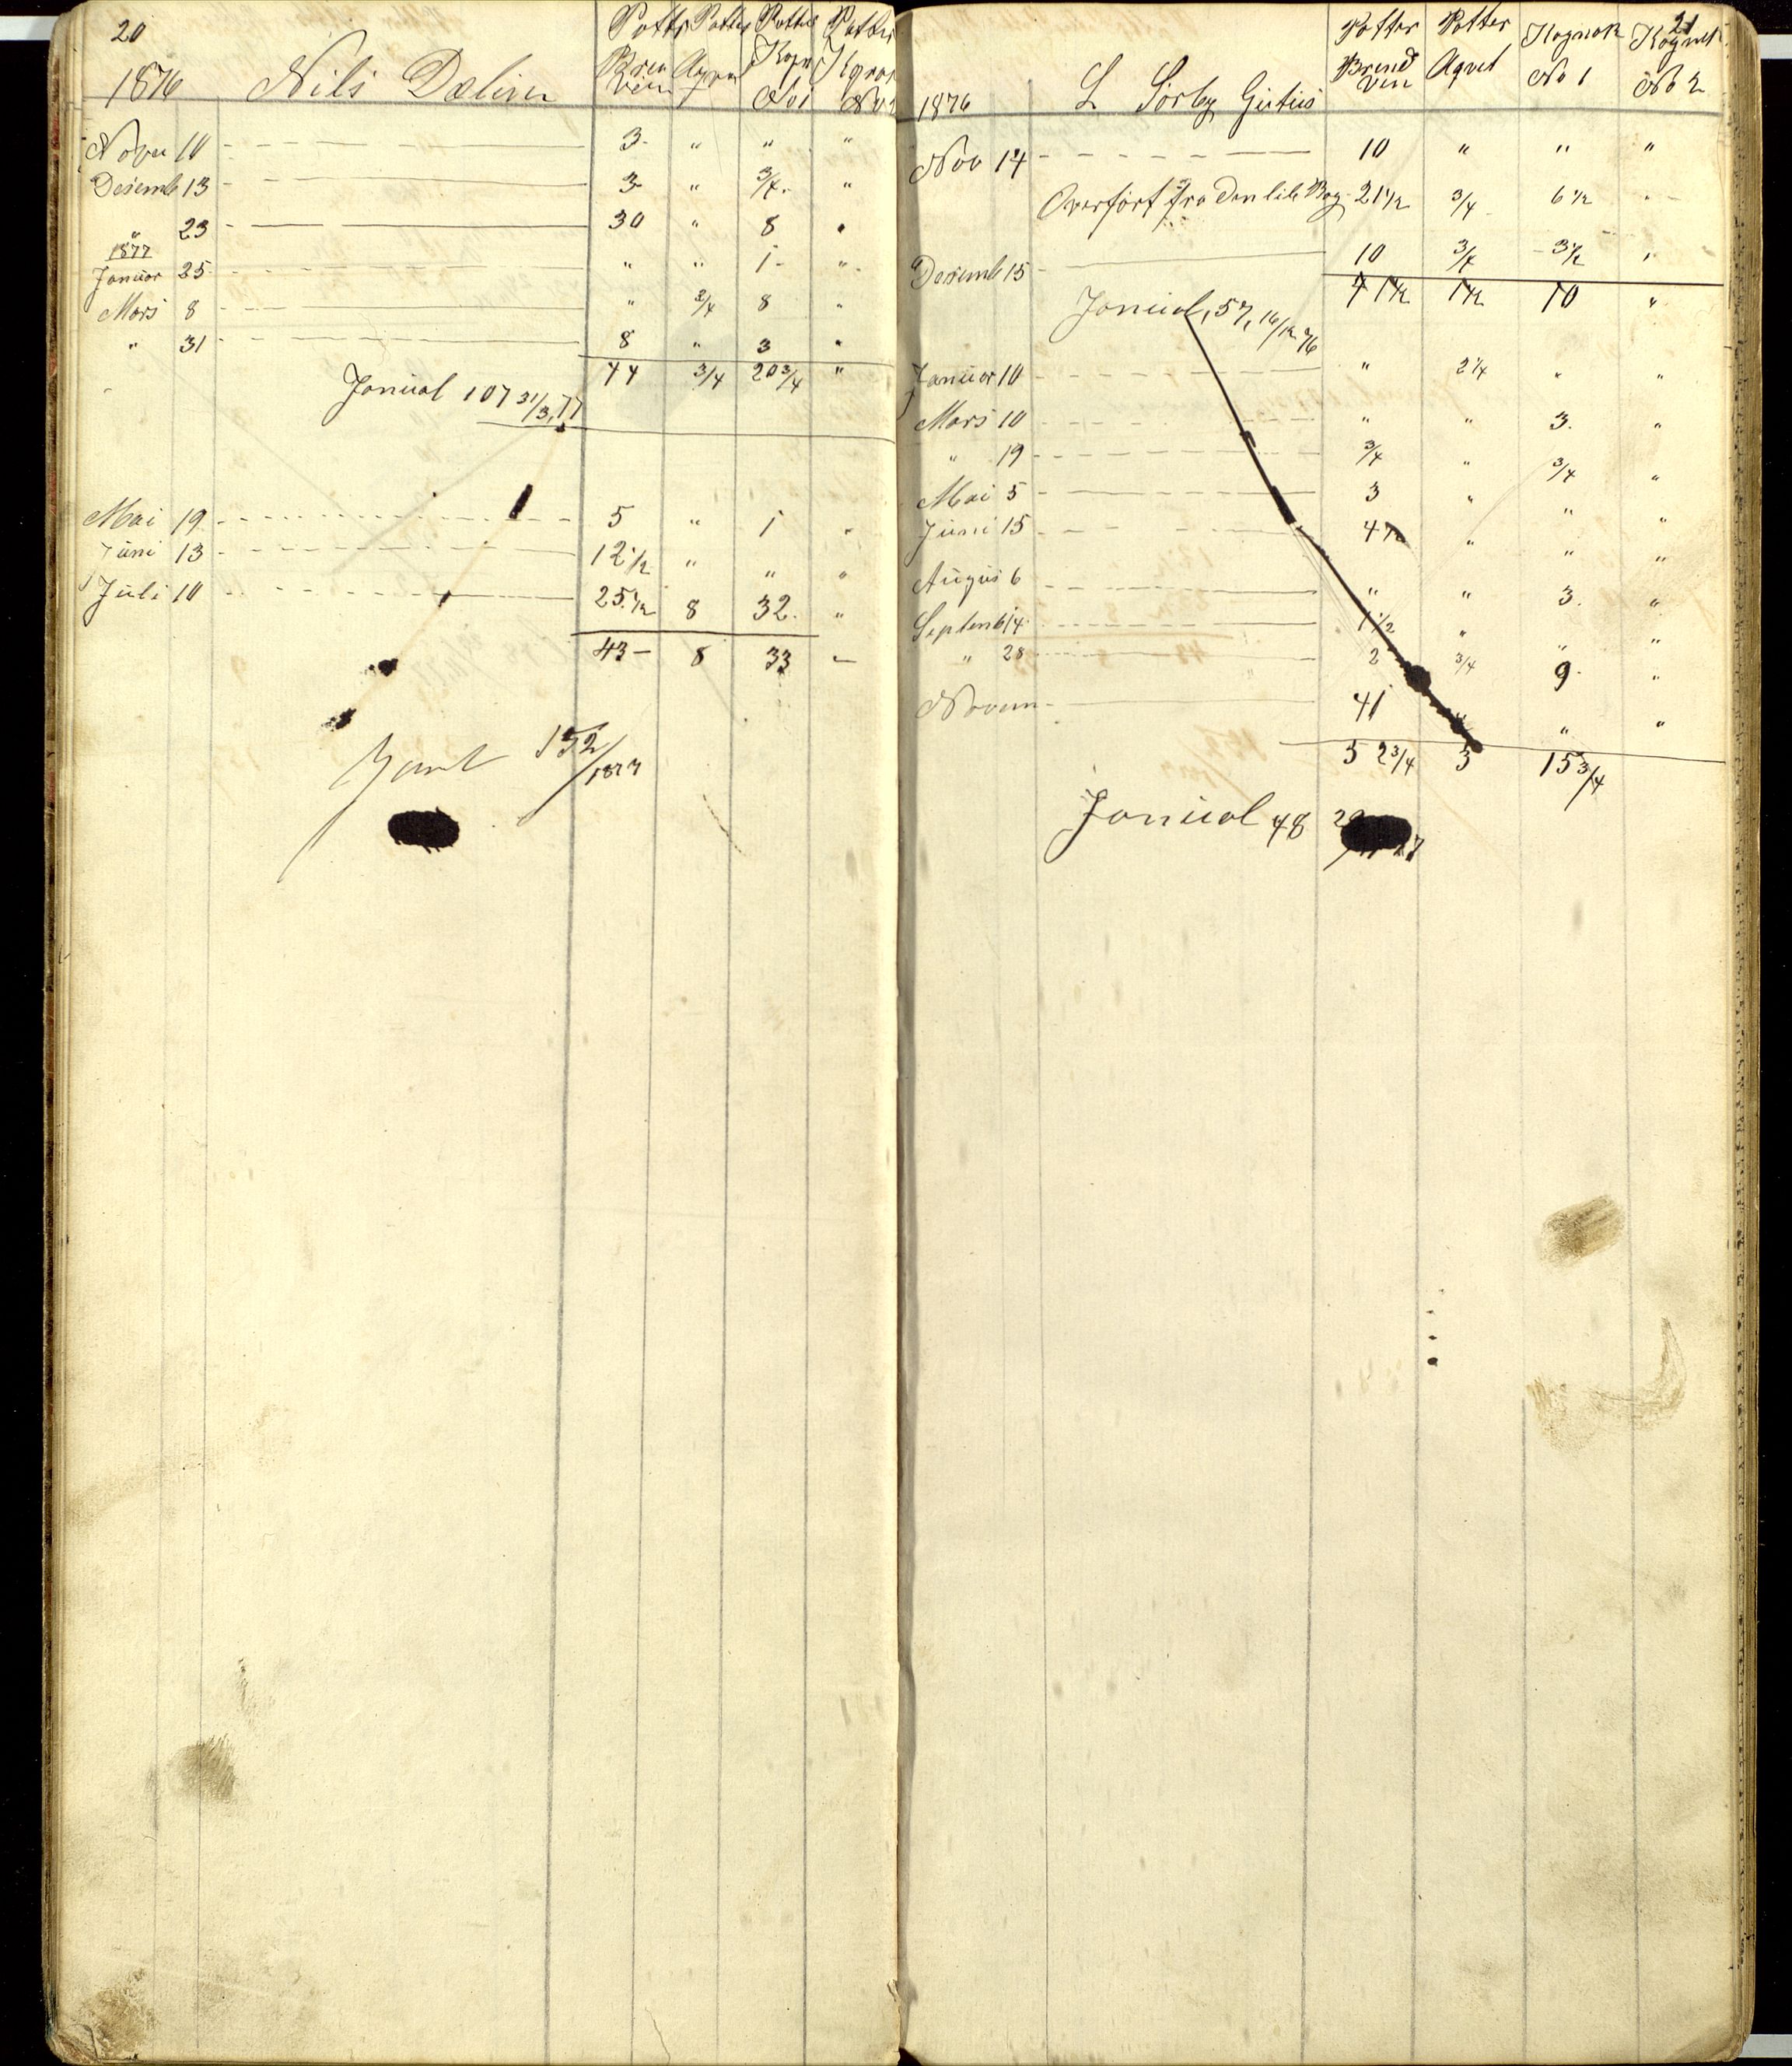 20
Potter Potter Potter Potter
1876 Nils Dælivn Bren Vein Aqvet Kogn No 1 Kognak No 2
Novm 10 3 " " "
Desemb 13 3 " 3/4 "
" 23 30 " 8 "
1877
Januar 25 " " 1 "
Mars 8 " 3/4 8 "
" 31 8 " 3 "
44 3/4 20 3/4 "
Janual 107 31/3 77
Mai 19 5 " 1 "
Juni 13 12 1/2 " " "
Juli 10 25 1/2 8 32 "
43 – 8 33 –
152/1877
21
Potter Potter Kognak Kognak
1876 L Sørby Brend Vin Aqvet No 1 No 2
Nov 14 10 " " "
Overført fra Den lile Bog 21 1/2 3/4 6 1/2 "
Desemb 15 10 3/4 3 1/2 "
41 1/2 1 1/2 10 "
Janual, 57, 16/12 76
Januar 10 " 2 1/4 " "
Mars 10 " " 3 "
" 19 3/4 " 3/4 "
Mai 5 3 " " "
Juni 15 4 1/2 " " "
Augus 6 " " 3 "
Septemb 14 1 1/2 " " "
" 28 2 3/4 9 "
Novem 41 " " "
52 3/4 3 15 3/4
Janual 48